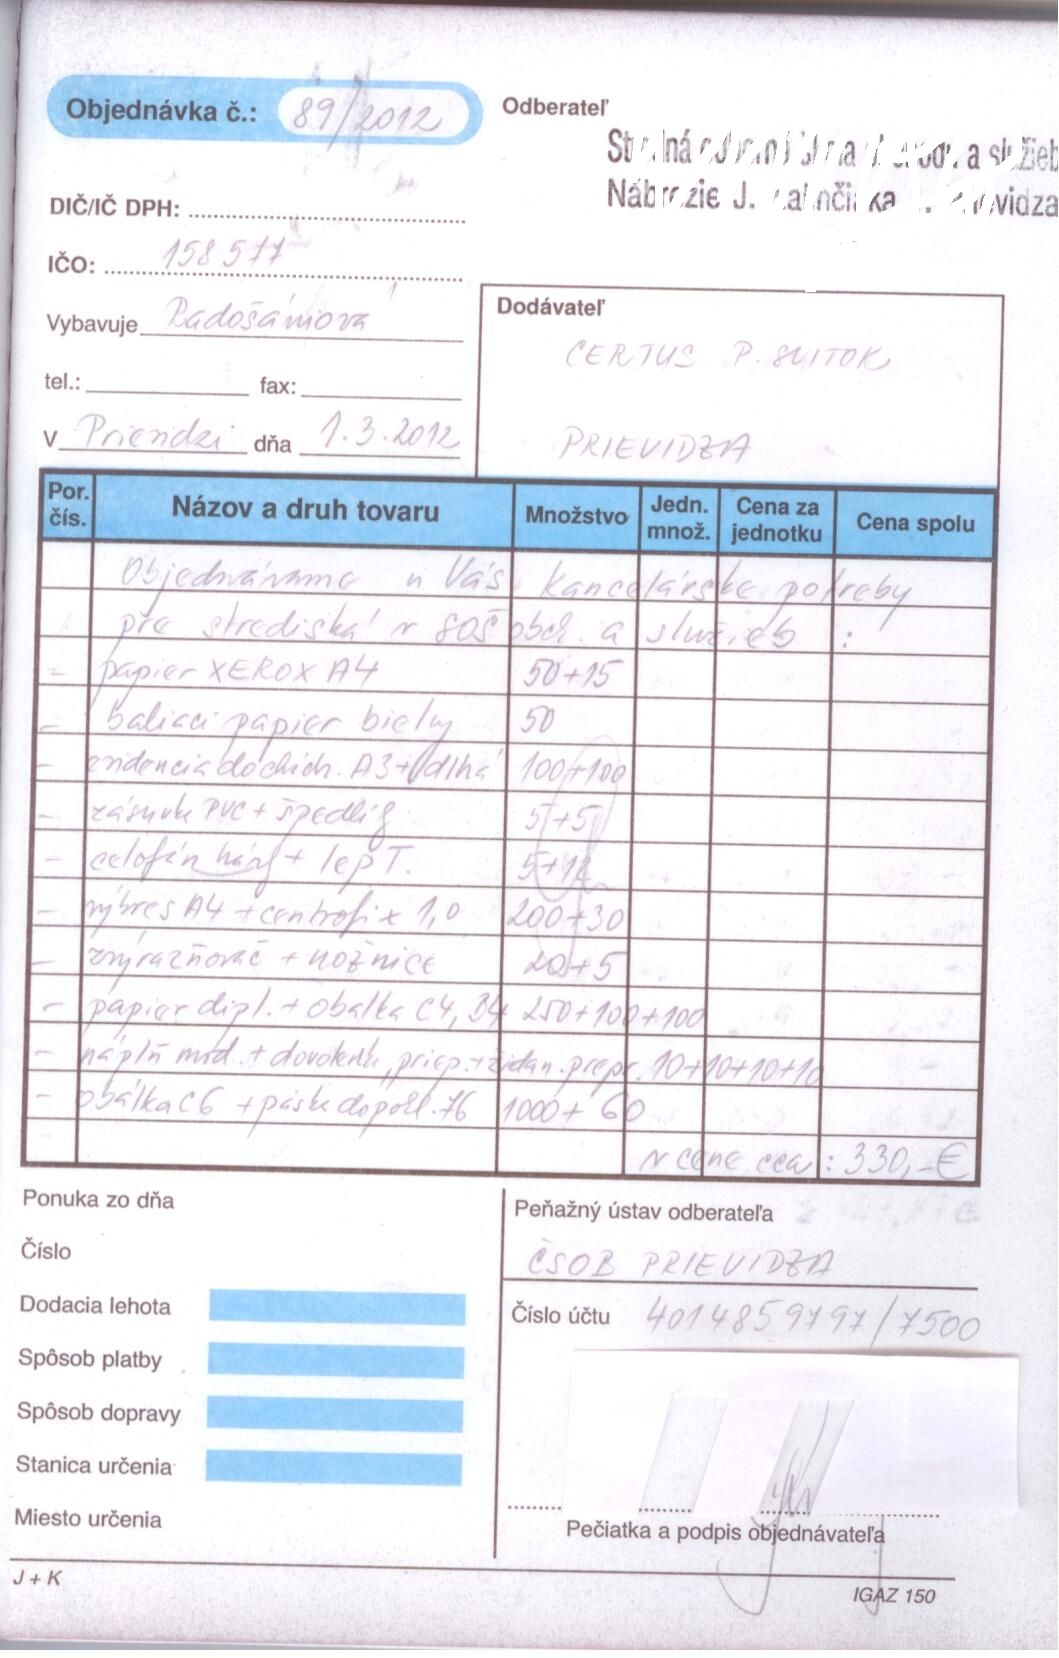 Objednávka č.: 89/2012
Odberateľ
a služieb
Nábrežie J.
DIČ/IČ DPH:
IČO: 158577
Vybavuje Radošániova
tel.: fax:
V Prievidzi dňa 1.3.2012
Dodávateľ
CERTUS P. SVITOK
PRIEVIDZA
Por. čís. Názov a druh tovaru Množstvo Jedn. množ. Cena za jednotku Cena spolu
Objednávame u Vás kancelárske potreby
pre strediská v SOŠ obch. a služieb :
- papier XEROX A4 50+15
- baliaci papier biely 50
- evidencia dochádz. A3+dlhá 100+100
- 5+5
- celofán hárg + lep T. 5+12
- výkres A4 + centrofix 1,0 200+30
- zvýrazňovač + nožnice 20+5
- papier dipl. + obálka C4, B4 250+100+100
- náplň + dovolenku, priep. + žiadan. prepr. 10+10+10+10
- obálka C6 + páska 76 1000+60
v cene cca : 330,-€
Ponuka zo dňa
Číslo
Dodacia lehota
Spôsob platby
Spôsob dopravy
Stanica určenia
Miesto určenia
Peňažný ústav odberateľa
ČSOB PRIEVIDZA
Číslo účtu 4014859797/7500
Pečiatka a podpis objednávateľa
J + K
IGAZ 150